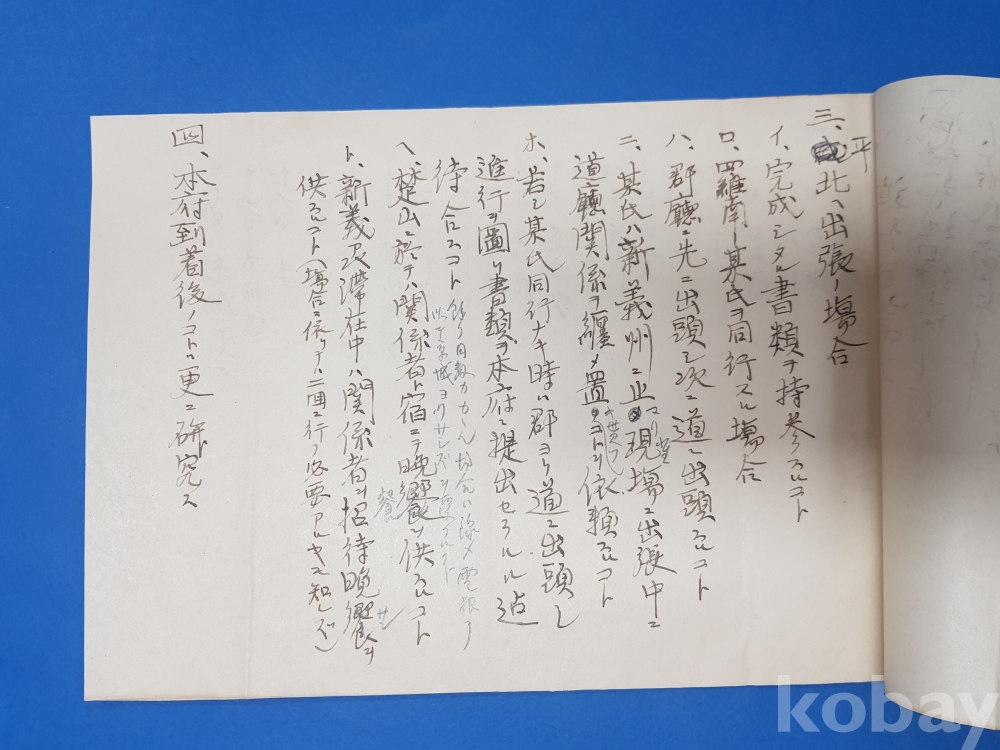 三、平北ヘ出張ノ場合
イ、完成シタル書類ヲ持参スルコト
ロ、羅南ノ某氏ヲ同行スル場合
ハ、郡廳ニ先ニ出頭シ次ニ道ニ出頭スルコト
ニ、某氏ハ新義州ニ止マリ現場ニ出張中ニ
道廳関係ヲ纏メ置 依頼スルコト
ホ、若シ某氏同行ナキ時ハ郡ヨリ道ニ出頭シ
進行ヲ圖リ書類ヲ本府ニ提出セラルル迠
待合スコト
餘リ日数カカル場合ハ 電報
ヘ、楚山ニ於テハ関係者ト宿ニテ晩饗ヲ供スルコト
餐
ト、新義州滞在中ハ関係者ヲ招待晩饗ヲ
供スルコト(場合ニ依リテハ二回ニ行フ必要アルヤモ知レズ)
四、本府到着後ノコトハ更ニ研究ス
kobay